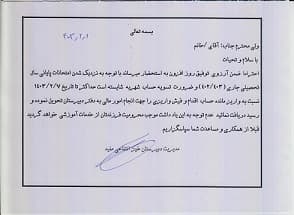 بسمه تعالی
ولی محترم جناب: آقای / خانم
با سلام و تحیات
احتراما ضمن آرزوی توفیق روز افزون به استحضار میرساند با توجه به نزدیک شدن امتحانات پایانی سال
تحصیلی جاری (۱۴۰۲/۱۴۰۳) و ضرورت تسویه حساب شهریه شایسته است حداکثر تا تاریخ ۱۴۰۳/۲/۷
نسبت به واریز مانده حساب اقدام و فیش واریزی را جهت انجام امور مالی به دفتر دبیرستان تحویل نموده و
رسید دریافت نمائید عدم توجه به این یاد داشت موجب محرومیت فرزندتان از خدمات آموزشی خواهد گردید
قبلا از همکاری و مساعدات شما سپاسگزاریم
مدیریت دبیرستان غیر انتفاعی مفید